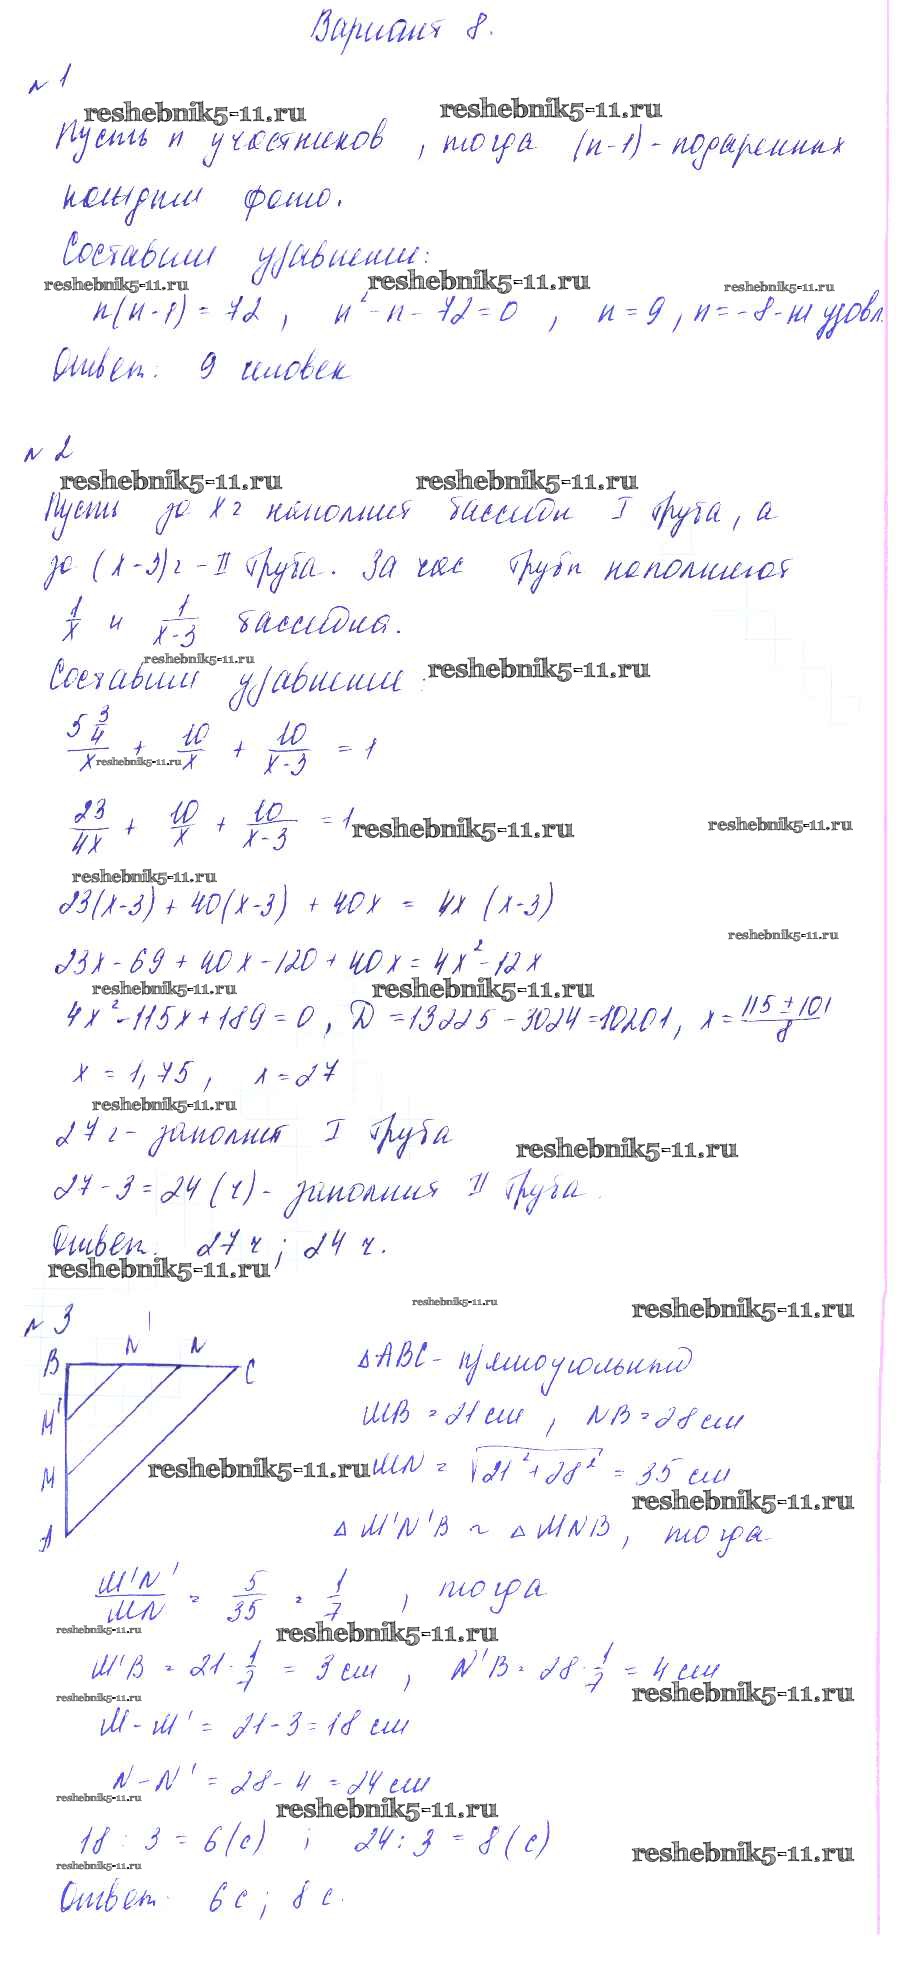 Вариант 8.
№ 1
reshebnik5-11.ru reshebnik5-11.ru
Пусть n участников, тогда (n-1) - подаренных
каждым фото.
Составим уравнение:
reshebnik5-11.ru reshebnik5-11.ru reshebnik5-11.ru
n(n-1) = 72, n² - n - 72 = 0, n = 9, n = -8 - не удовл.
Ответ: 9 человек
№ 2
reshebnik5-11.ru reshebnik5-11.ru
Пусть за x ч наполнит бассейн I труба, а
за (x-3) ч - II труба. За час трубы наполняют
1/x и 1/(x-3) бассейна.
reshebnik5-11.ru reshebnik5-11.ru
Составим уравнение:
5 3/4 / x + 10/x + 10/(x-3) = 1
reshebnik5-11.ru
23/4x + 10/x + 10/(x-3) = 1
reshebnik5-11.ru reshebnik5-11.ru
reshebnik5-11.ru
23(x-3) + 40(x-3) + 40x = 4x(x-3)
reshebnik5-11.ru
23x - 69 + 40x - 120 + 40x = 4x² - 12x
reshebnik5-11.ru reshebnik5-11.ru
4x² - 115x + 189 = 0, D = 13225 - 3024 = 10201, x = (115 ± 101)/8
x = 1,75, x = 27
reshebnik5-11.ru
27 ч - заполнит I труба
reshebnik5-11.ru
27 - 3 = 24 (ч) - заполнит II труба.
Ответ: 27 ч; 24 ч.
reshebnik5-11.ru
reshebnik5-11.ru reshebnik5-11.ru
№ 3
B N' N C
M'
M
A
△ABC - прямоугольный
MB = 21 см, NB = 28 см
reshebnik5-11.ru
MN = √21² + 28² = 35 см
reshebnik5-11.ru
△M'N'B ~ △MNB, тогда
M'N'/MN = 5/35 = 1/7, тогда
reshebnik5-11.ru reshebnik5-11.ru
M'B = 21·1/7 = 3 см, N'B = 28·1/7 = 4 см
reshebnik5-11.ru reshebnik5-11.ru
M - M' = 21 - 3 = 18 см
N - N' = 28 - 4 = 24 см
reshebnik5-11.ru reshebnik5-11.ru
18 : 3 = 6 (с) ; 24 : 3 = 8 (с)
reshebnik5-11.ru reshebnik5-11.ru
Ответ: 6 с; 8 с.